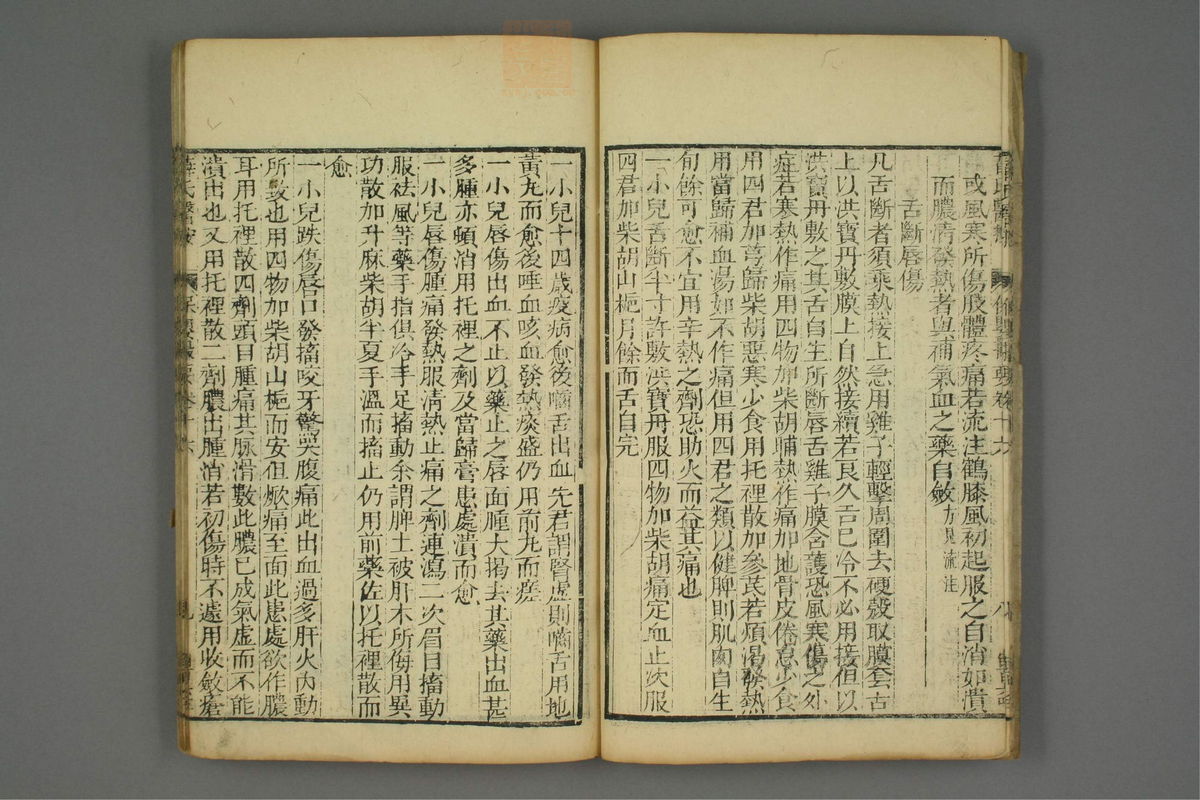 或風寒所傷肢體疼痛若流注鶴膝風初起服之自消如潰
而膿清發熱者與補氣血之藥自斂方見流注
舌斷唇傷
凡舌斷者須乘熱接上急用雞子輕擊周圍去硬殼取膜套舌
上以洪寶丹敷膜上自然接續若良久舌已冷不必用接但以
洪寶丹敷之其舌自生所斷唇舌雞子膜含護恐風寒傷之外
症若寒熱作痛用四物加柴胡晡熱作痛加地骨皮倦怠少食
用四君加芎歸柴胡惡寒少食用托裡散加參芪若煩渴發熱
用當歸補血湯如不作痛但用四君之類以健脾則肌肉自生
旬餘可愈不宜用辛熱之劑恐助火而益其痛也
一小兒舌斷半寸許敷洪寶丹服四物加柴胡痛定血止次服
四君加柴胡山梔月餘而舌自完
一小兒十四歲疫病愈後嚙舌出血先君謂腎虛則嚙舌用地
黃丸而愈後唾血咳血發熱痰盛仍用前丸而瘥
一小兒唇傷出血不止以藥止之唇面腫大揭去其藥出血甚
多腫亦頓消用托裡之劑及當歸膏患處潰而愈
一小兒唇傷腫痛發熱服清熱止痛之劑連瀉二次眉目搐動
服祛風等藥手指俱冷手足搐動余謂脾土被肝木所侮用異
功散加升麻柴胡半夏手溫而搐止仍用前藥佐以托裡散而
愈
一小兒跌傷唇口發搐咬牙驚哭腹痛此出血過多肝火內動
所致也用四物加柴胡山梔而安但瘀痛至面此患處欲作膿
耳用托裡散四劑頭目腫痛其脈滑數此膿已成氣虛而不能
潰出也又用托裡散二劑膿出腫消若初傷時不遽用收斂瘡